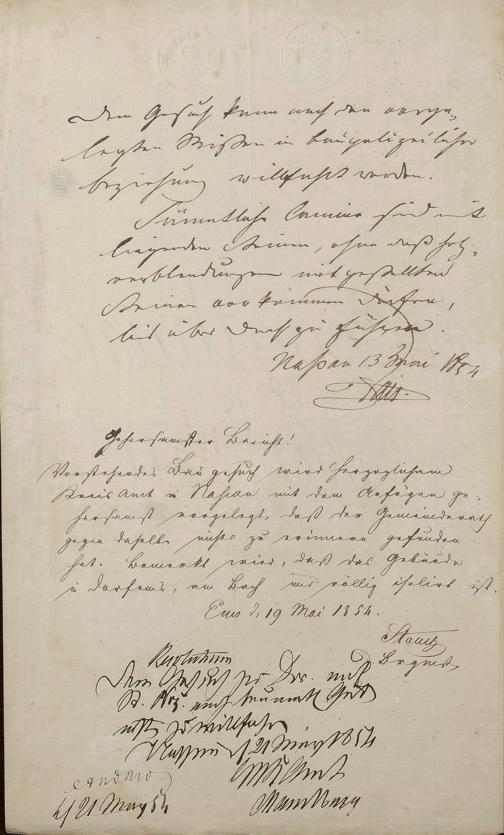 Dem Gesuch kann nach den vorge-
legten Rissen in baupolizeilicher
beziehung willfahrt werden.
Sämmtliche Camine sind mit
liegenden Steinen, ohne daß holz-
verblendungen mit gestellten
Steinen vorkommen dürfen,
bis über Dach zu führen.
Naßau 13 Mai 1854
Gehorsamster Bericht!
Vorstehendes Baugesuch wird Herzoglichem
Kreisamt in Naßau mit dem Anfügen ge-
horsamst vorgelegt, daß der Gemeinderath
gegen dasselbe nichts zu erinnern gefunden
hat. Bemerkt wird, daß das Gebäude
in Dorfems, am Bach und völlig isolirt ist.
Ems d. 19 Mai 1854.
Resolutum
Dem Gesuch
zu willfahren
Nassau d/21 May 1854
Amt
d/21 May 54